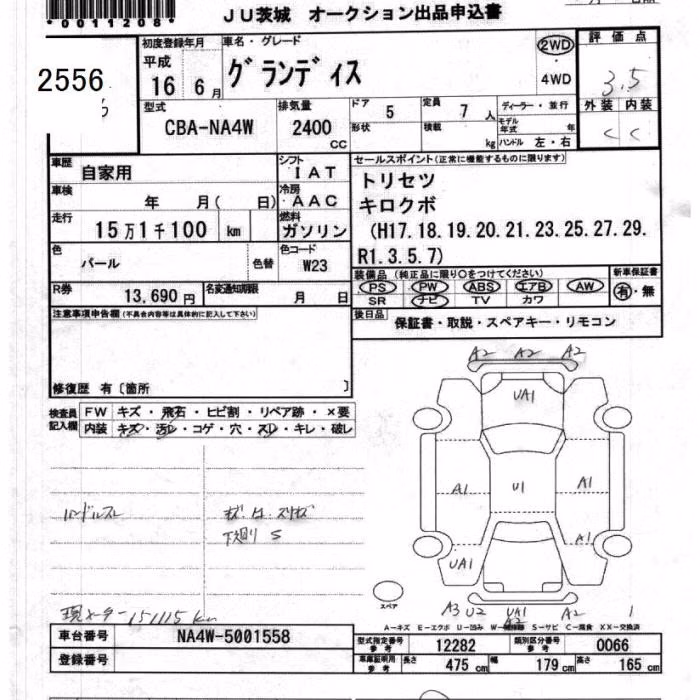 *0011208*
JU茨城 オークション出品申込書
2556
初度登録年月
平成
16 6月
車名・グレード
グランディス
2WD
4WD
評価点
3.5
外装 内装
C C
型式
CBA-NA4W
排気量
2400
CC
ドア 5
定員 7人
形状
積載 kg
ディーラー・並行
モデル年式 年
ハンドル 左・右
車歴
自家用
車検
年 月( 日)
走行
15万1千100 km
シフト
IAT
冷房
AAC
燃料
ガソリン
セールスポイント(正常に機能するものに限ります)
トリセツ
キロクボ
(H17.18.19.20.21.23.25.27.29.
R1.3.5.7)
色
パール
色替
色コード
W23
装備品(純正品に限り○をつけてください)
PS PW ABS エアB AW
SR ナビ TV カワ
新車保証書
有・無
R券
13,690円
名変通知期限
月 日
後日品
保証書・取説・スペアキー・リモコン
注意事項申告欄(不具合内容等は具体的に記入して下さい)
修復歴 有〔箇所 〕
検査員記入欄
FW キズ・飛石・ヒビ割・リペア跡・×要
内装 キズ・汚レ・コゲ・穴・スレ・キレ・破レ
ハンドルスレ
下廻り S
現メーター151115km
A2 A2 A2
UA1
A1 U1 A1
UA1 A1
スペア
A3 U2 UA1 A2 1
A2
A-キズ E-エクボ U-凹み W-補修跡 S-サビ C-腐食 XX-交換済
車台番号
NA4W-5001558
登録番号
型式指定番号 参考
12282
類別区分番号 参考
0066
車庫証明用 参考
長さ 475cm
幅 179cm
高さ 165cm